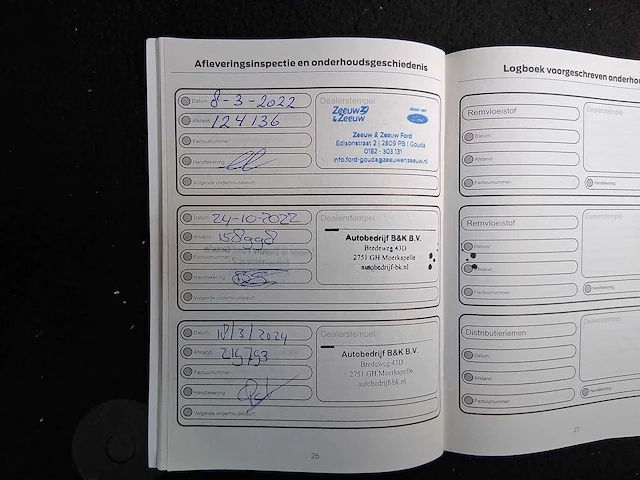 Afleveringsinspectie en onderhoudsgeschiedenis
Datum: 8-3-2022
Afstand: 124136
Factuurnummer:
Handtekening:
Volgende onderhoudsbeurt:
Dealerstempel
Zeeuw & Zeeuw
dealer van
Ford
Zeeuw & Zeeuw Ford
Edisonstraat 2 | 2809 PB | Gouda
0182 - 303 131
info.ford-gouda@zeeuwenzeeuw.nl
Datum: 24-10-2022
Afstand: 158998
Factuurnummer:
Handtekening:
Volgende onderhoudsbeurt:
Dealerstempel
Autobedrijf B&K B.V.
Bredeweg 43D
2751 GH Moerkapelle
autobedrijf-bk.nl
Datum: 18/3/2024
Afstand: 219793
Factuurnummer:
Handtekening:
Volgende onderhoudsbeurt:
Dealerstempel
Autobedrijf B&K B.V.
Bredeweg 43D
2751 GH Moerkapelle
autobedrijf-bk.nl
26
Logboek voorgeschreven onderhou
Remvloeistof
Datum:
Afstand:
Factuurnummer:
Dealerstempel
Handtekening:
Remvloeistof
Datum:
Afstand:
Factuurnummer:
Dealerstempel
Handtekening:
Distributieriemen
Datum:
Afstand:
Factuurnummer:
Dealerstempel
Handtekening:
27